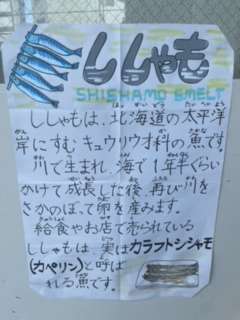 ししゃも
SHISHAMO SMELT
ししゃもは、北海道の太平洋
岸にすむキュウリウオ科の魚です。
川で生まれ、海で1年半ぐらい
かけて成長した後、再び川を
さかのぼって卵を産みます。
給食やお店で売られている
ししゃもは、実はカラフトシシャモ
(カペリン)と呼ば
れる魚です。